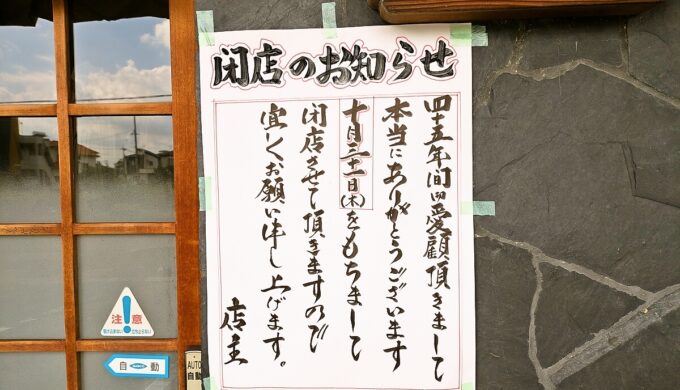 閉店のお知らせ
四十五年间御愛顧頂きまして
本当にありがとうございます
十月三十一日(木)をもちまして
閉店させて頂きますので
宜しくお願い申し上げます。
店主
注意
自動
AUTO
自動